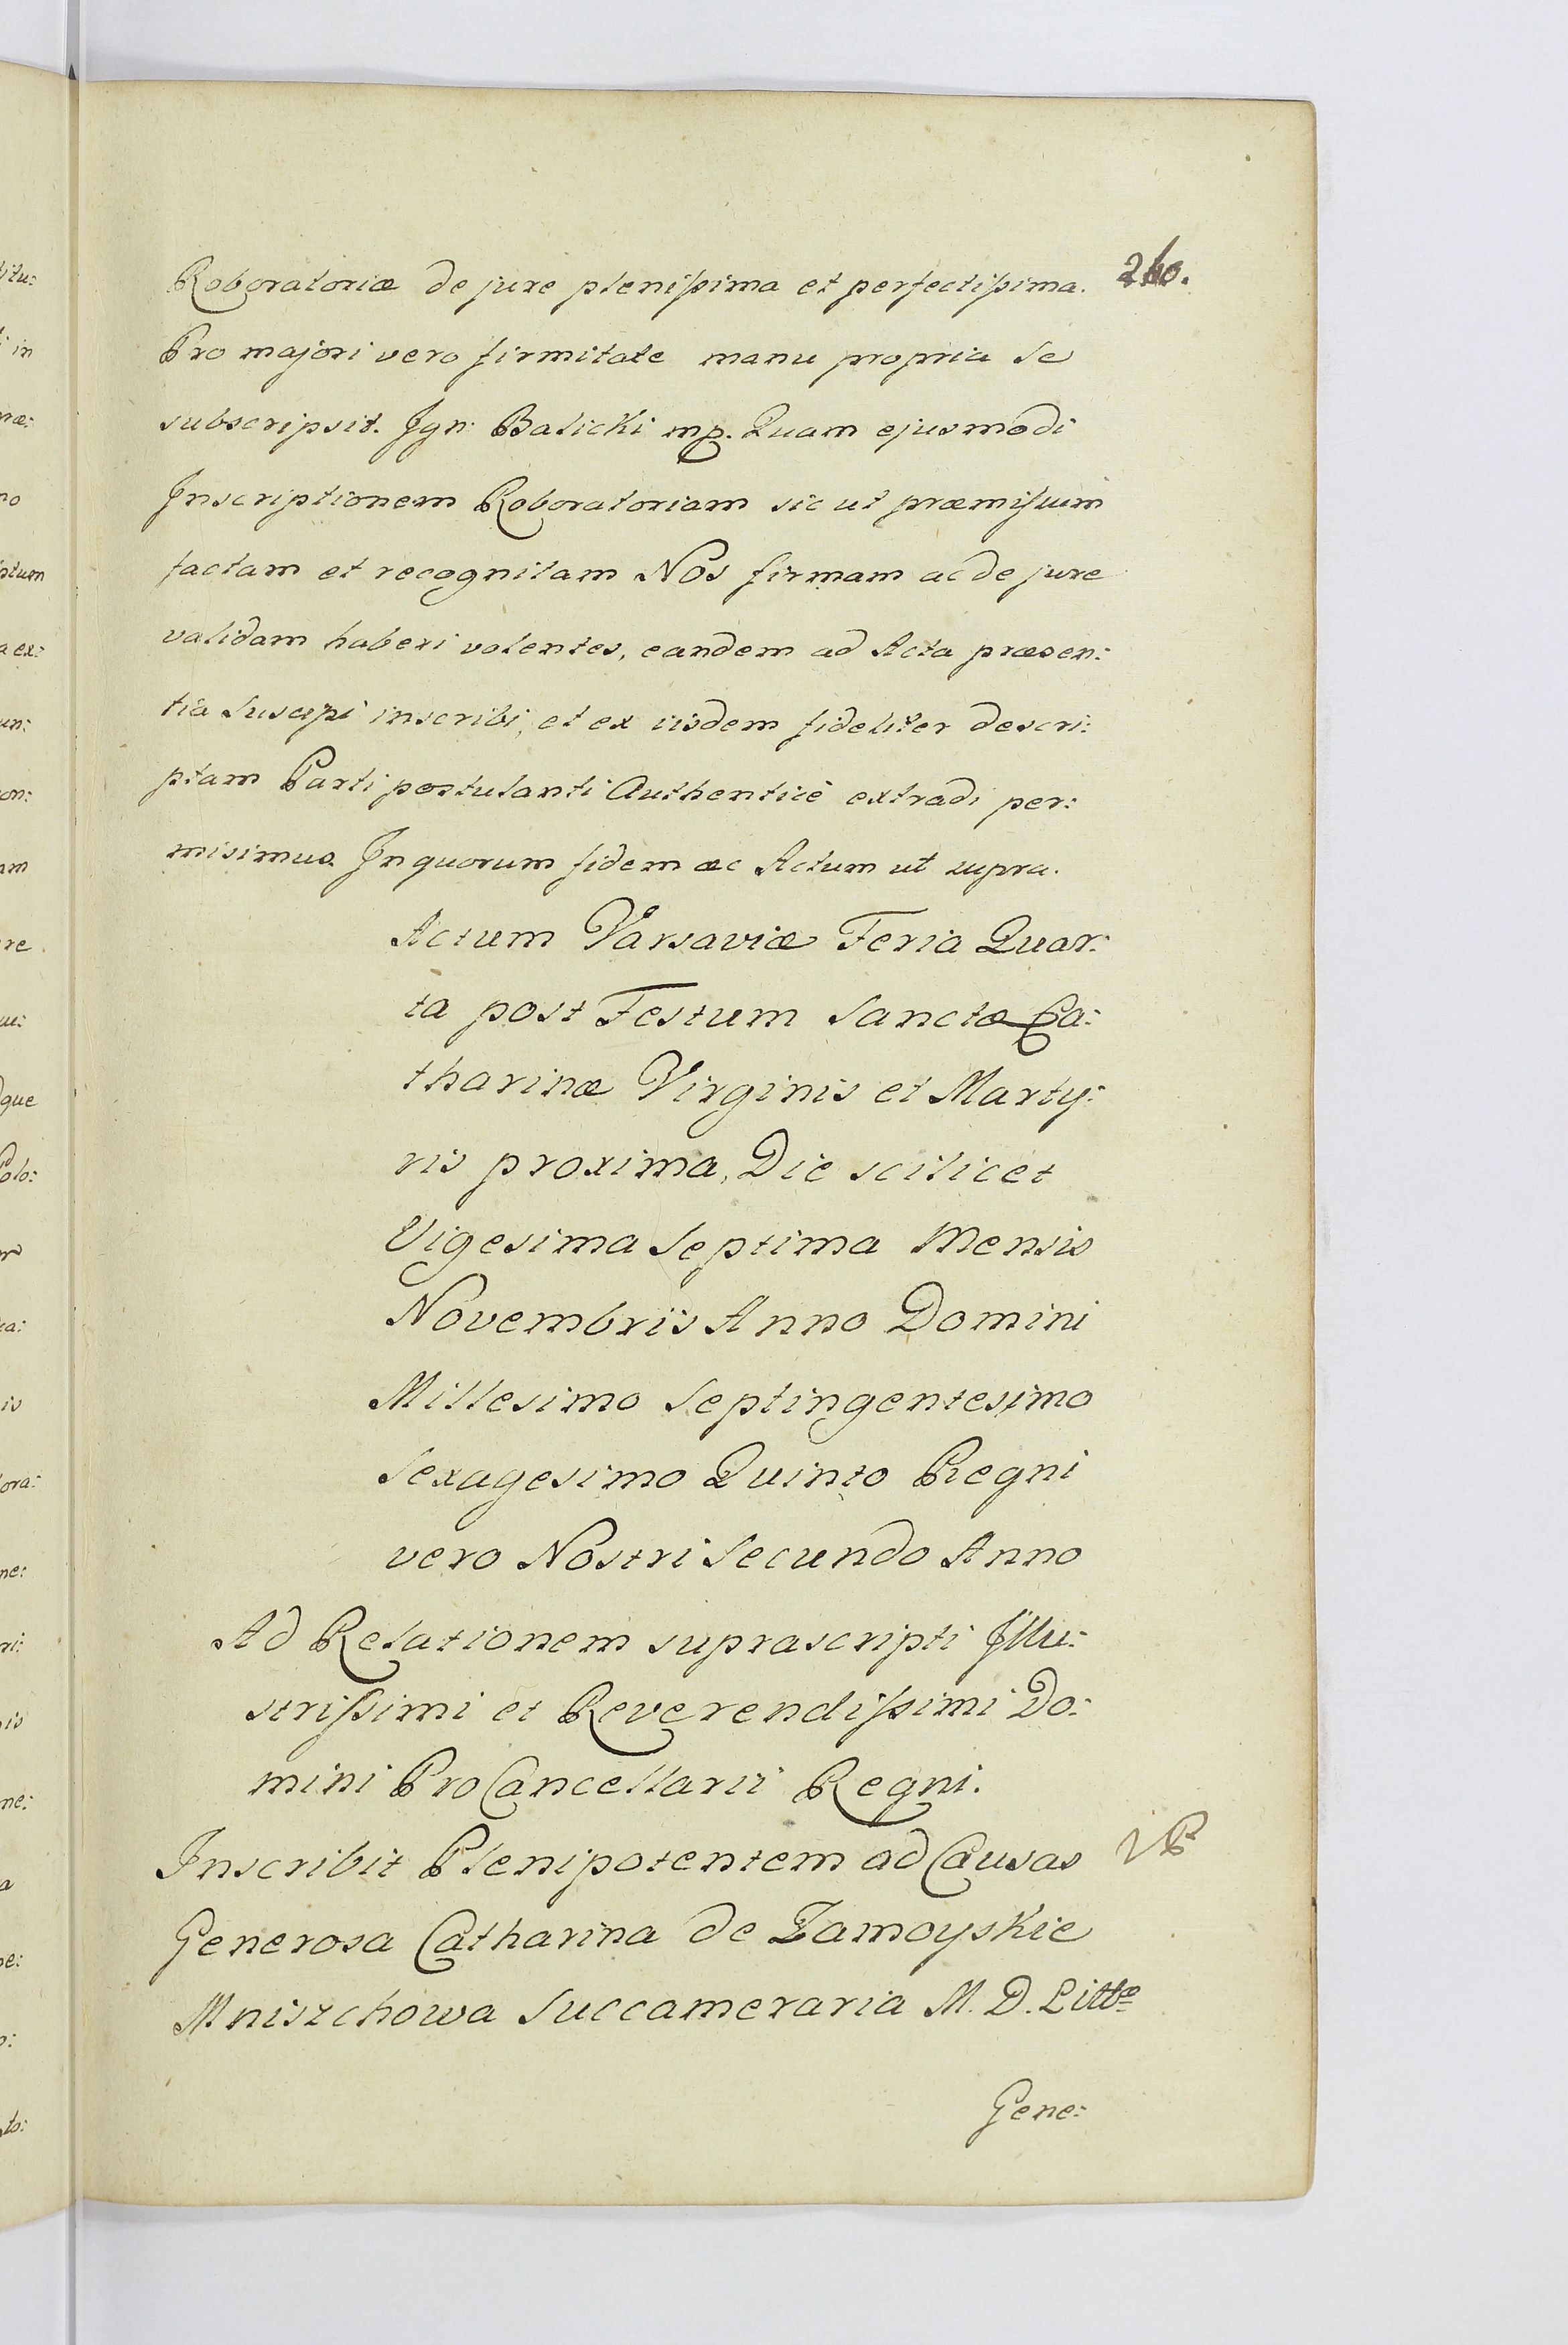 Roboratoriæ de jure plenissima et perfectissima.
Pro majori vero firmitate manu propria se
subscripsit. Ign: Balicki mp. Quam ejusmodi
Inscriptionem Roboratoriam sic ut præmissum
factam et recognitam Nos firmam ac de jure
validam haberi volentes, eandem ad Acta præsen:
tia suscipi inscribi, et ex iisdem fideliter descri:
ptam Parti postulanti Authenticè extradi per:
misimus. In quorum fidem ac Actum ut supra.
Actum Varsaviæ Feria Quar:
ta post Festum Sanctæ Ca:
tharinæ Virginis et Marty:
ris proxima, Die scilicet
Vigesima Septima Mensis
Novembris Anno Domini
Millesimo Septingentesimo
Sexagesimo Quinto Regni
vero Nostri Secundo Anno
Ad Relationem suprascripti Illu:
strissimi et Reverendissimi Do:
mini ProCancellarii Regni.
Inscribit Plenipotentem ad Causas
Generosa Catharina de Zamoyskie
Mniszchowa Succameraria M. D. Littæ
Gene: